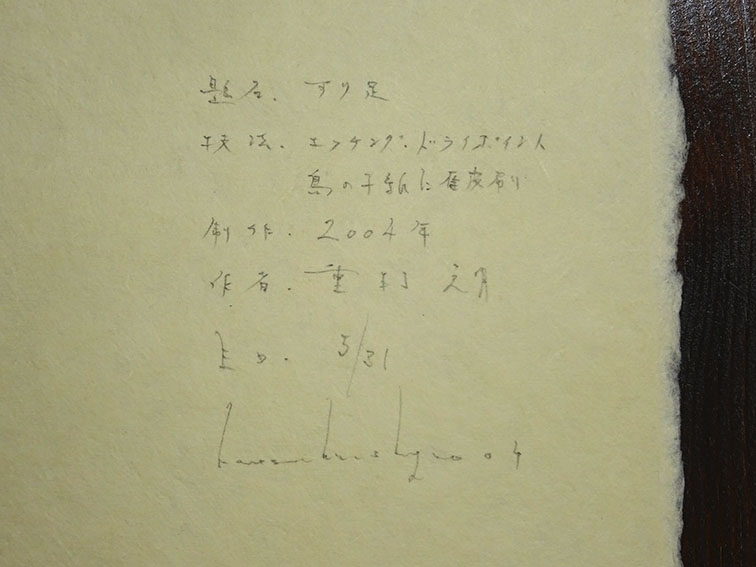 題名. すり足
技法. エッチング・ドライポイント
鳥の子紙に雁皮刷り
制作. 2004年
作者. 重村
5/31
04